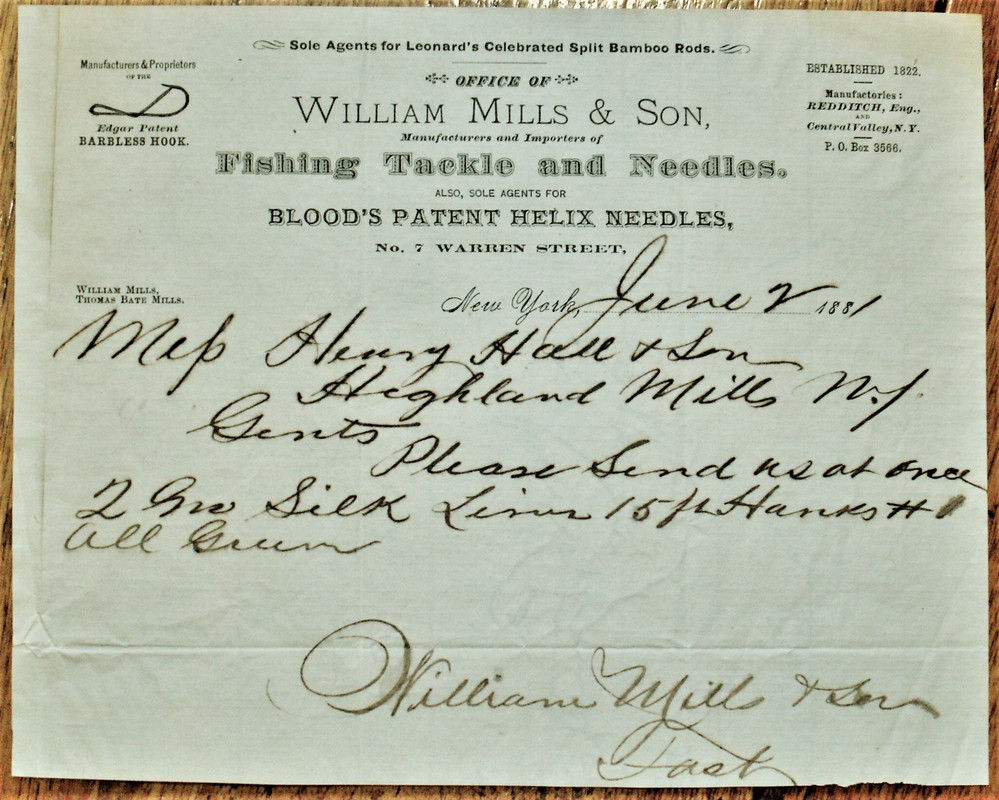 Sole Agents for Leonard's Celebrated Split Bamboo Rods.
Manufacturers & Proprietors
OF THE
Edgar Patent
BARBLESS HOOK.
OFFICE OF
WILLIAM MILLS & SON,
Manufacturers and Importers of
Fishing Tackle and Needles.
ALSO, SOLE AGENTS FOR
BLOOD'S PATENT HELIX NEEDLES,
No. 7 WARREN STREET,
ESTABLISHED 1822.
Manufactories:
REDDITCH, Eng.,
AND
Central Valley, N.Y.
P. O. Box 3566.
WILLIAM MILLS,
THOMAS BATE MILLS.
New York, June 2 1881
Mess Henry Hall & Son
Highland Mills N.Y.
Gents
Please Send us at once
2 Gro Silk Lines 15 ft Hanks # 1
all Green
William Mills & Son